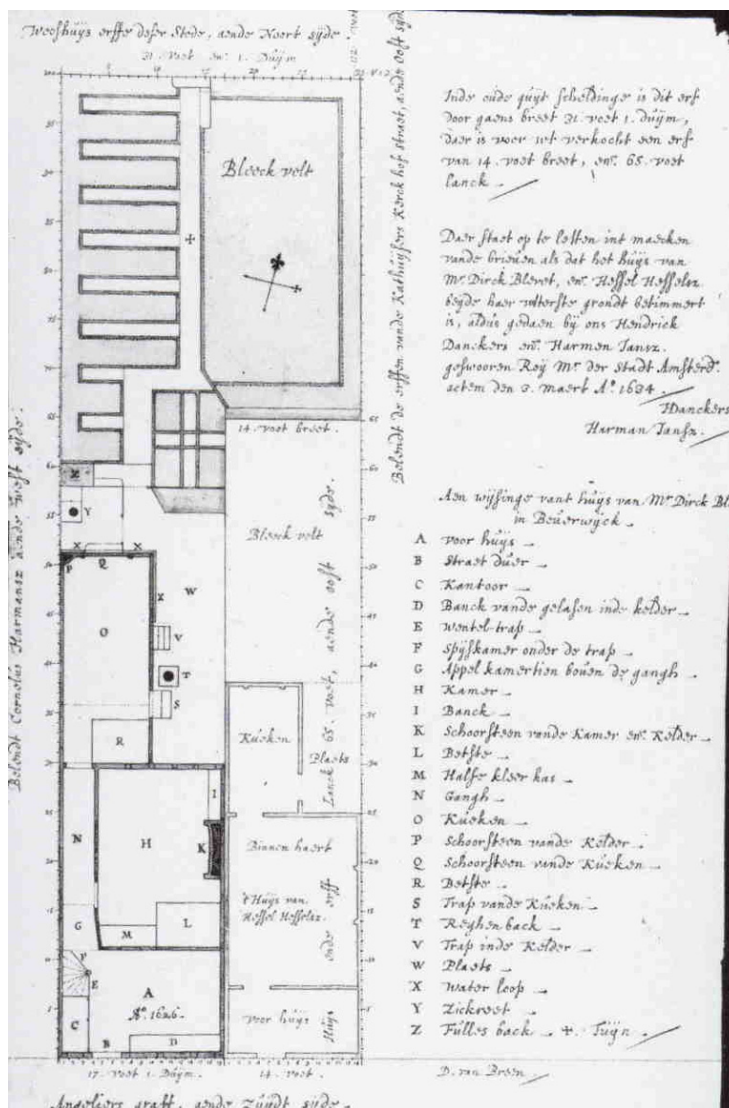 Weeshuÿs erffe deser Stede, aende Noort sÿde.
21. voet en. 1. Duÿm
Belendt de erffen vande Kathuÿsers Kerck hof straet, aende oost sÿde
Belendt Cornelus Harmansz aende west sÿde.
Bleeck velt
14. voet breet.
Bleeck velt
Lanck 65. voet, aende oost sÿde.
Kueken
Plaets
Binnen haert
't Huÿs van
Hessel Hesselsz
ende erff
Huÿs
voor huÿs
Z
Y
X X
P Q
O
X W
V
T
S
R
I
N H K
G M L
F
E
A
A.º 1626
C B D
17. voet 1. Duÿm. 14. voet.
Angeliers graft, aende Zuÿdt sÿde.
Inde oude quÿt scheldinge is dit erf
door gaens breet 21. voet 1. duÿm,
daer is voor wt verkocht een erf
van 14. voet breet, en. 65. voet
lanck
Daer staet op te letten int maecken
vande brieven als dat het huÿs van
Mr Dirck Blevet, en. Hessel Hesselsz
beÿde haer wterste grondt betimmert
is, aldus gedaen bÿ ons Hendrick
Danckers en. Harmen Jansz.
geswooren Roÿ Mr der Stadt Amsterd.
actem den 3. maert A.º 1634
HDanckers
Harman Jansz
Aen wÿsinge vant huÿs van Mr Dirck Bl
in Beuerwÿck
A voor huÿs
B Straet duer
C Kantoor
D Banck vande gelasen inde kelder
E Wentel-trap
F Spÿskamer onder de trap
G Appel kamertien bouen de gangh
H Kamer
I Banck
K Schoorsteen vande Kamer en. Kelder
L Betste
M Halfe kleer kas
N Gangh
O Kueken
P Schoorsteen vande Kelder
Q Schoorsteen vande Kueken
R Betste
S Trap vande Kueken
T Reghen back
V Trap inde Kelder
W Plaets
X Water loop
Y Zickreet
Z Fulles back ✠. Tuÿn
D. van Breen